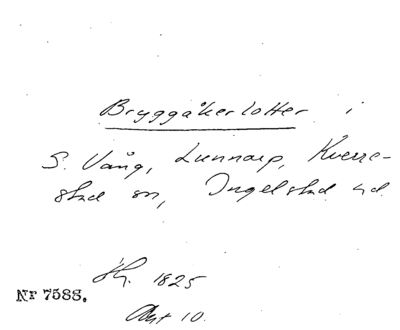 Bryggåkerlotter i
S. Vång, Lunnarp, Kverre-
stad sn, Ingelstad hd
Sk. 1825
Nr 7588.
Akt 10.